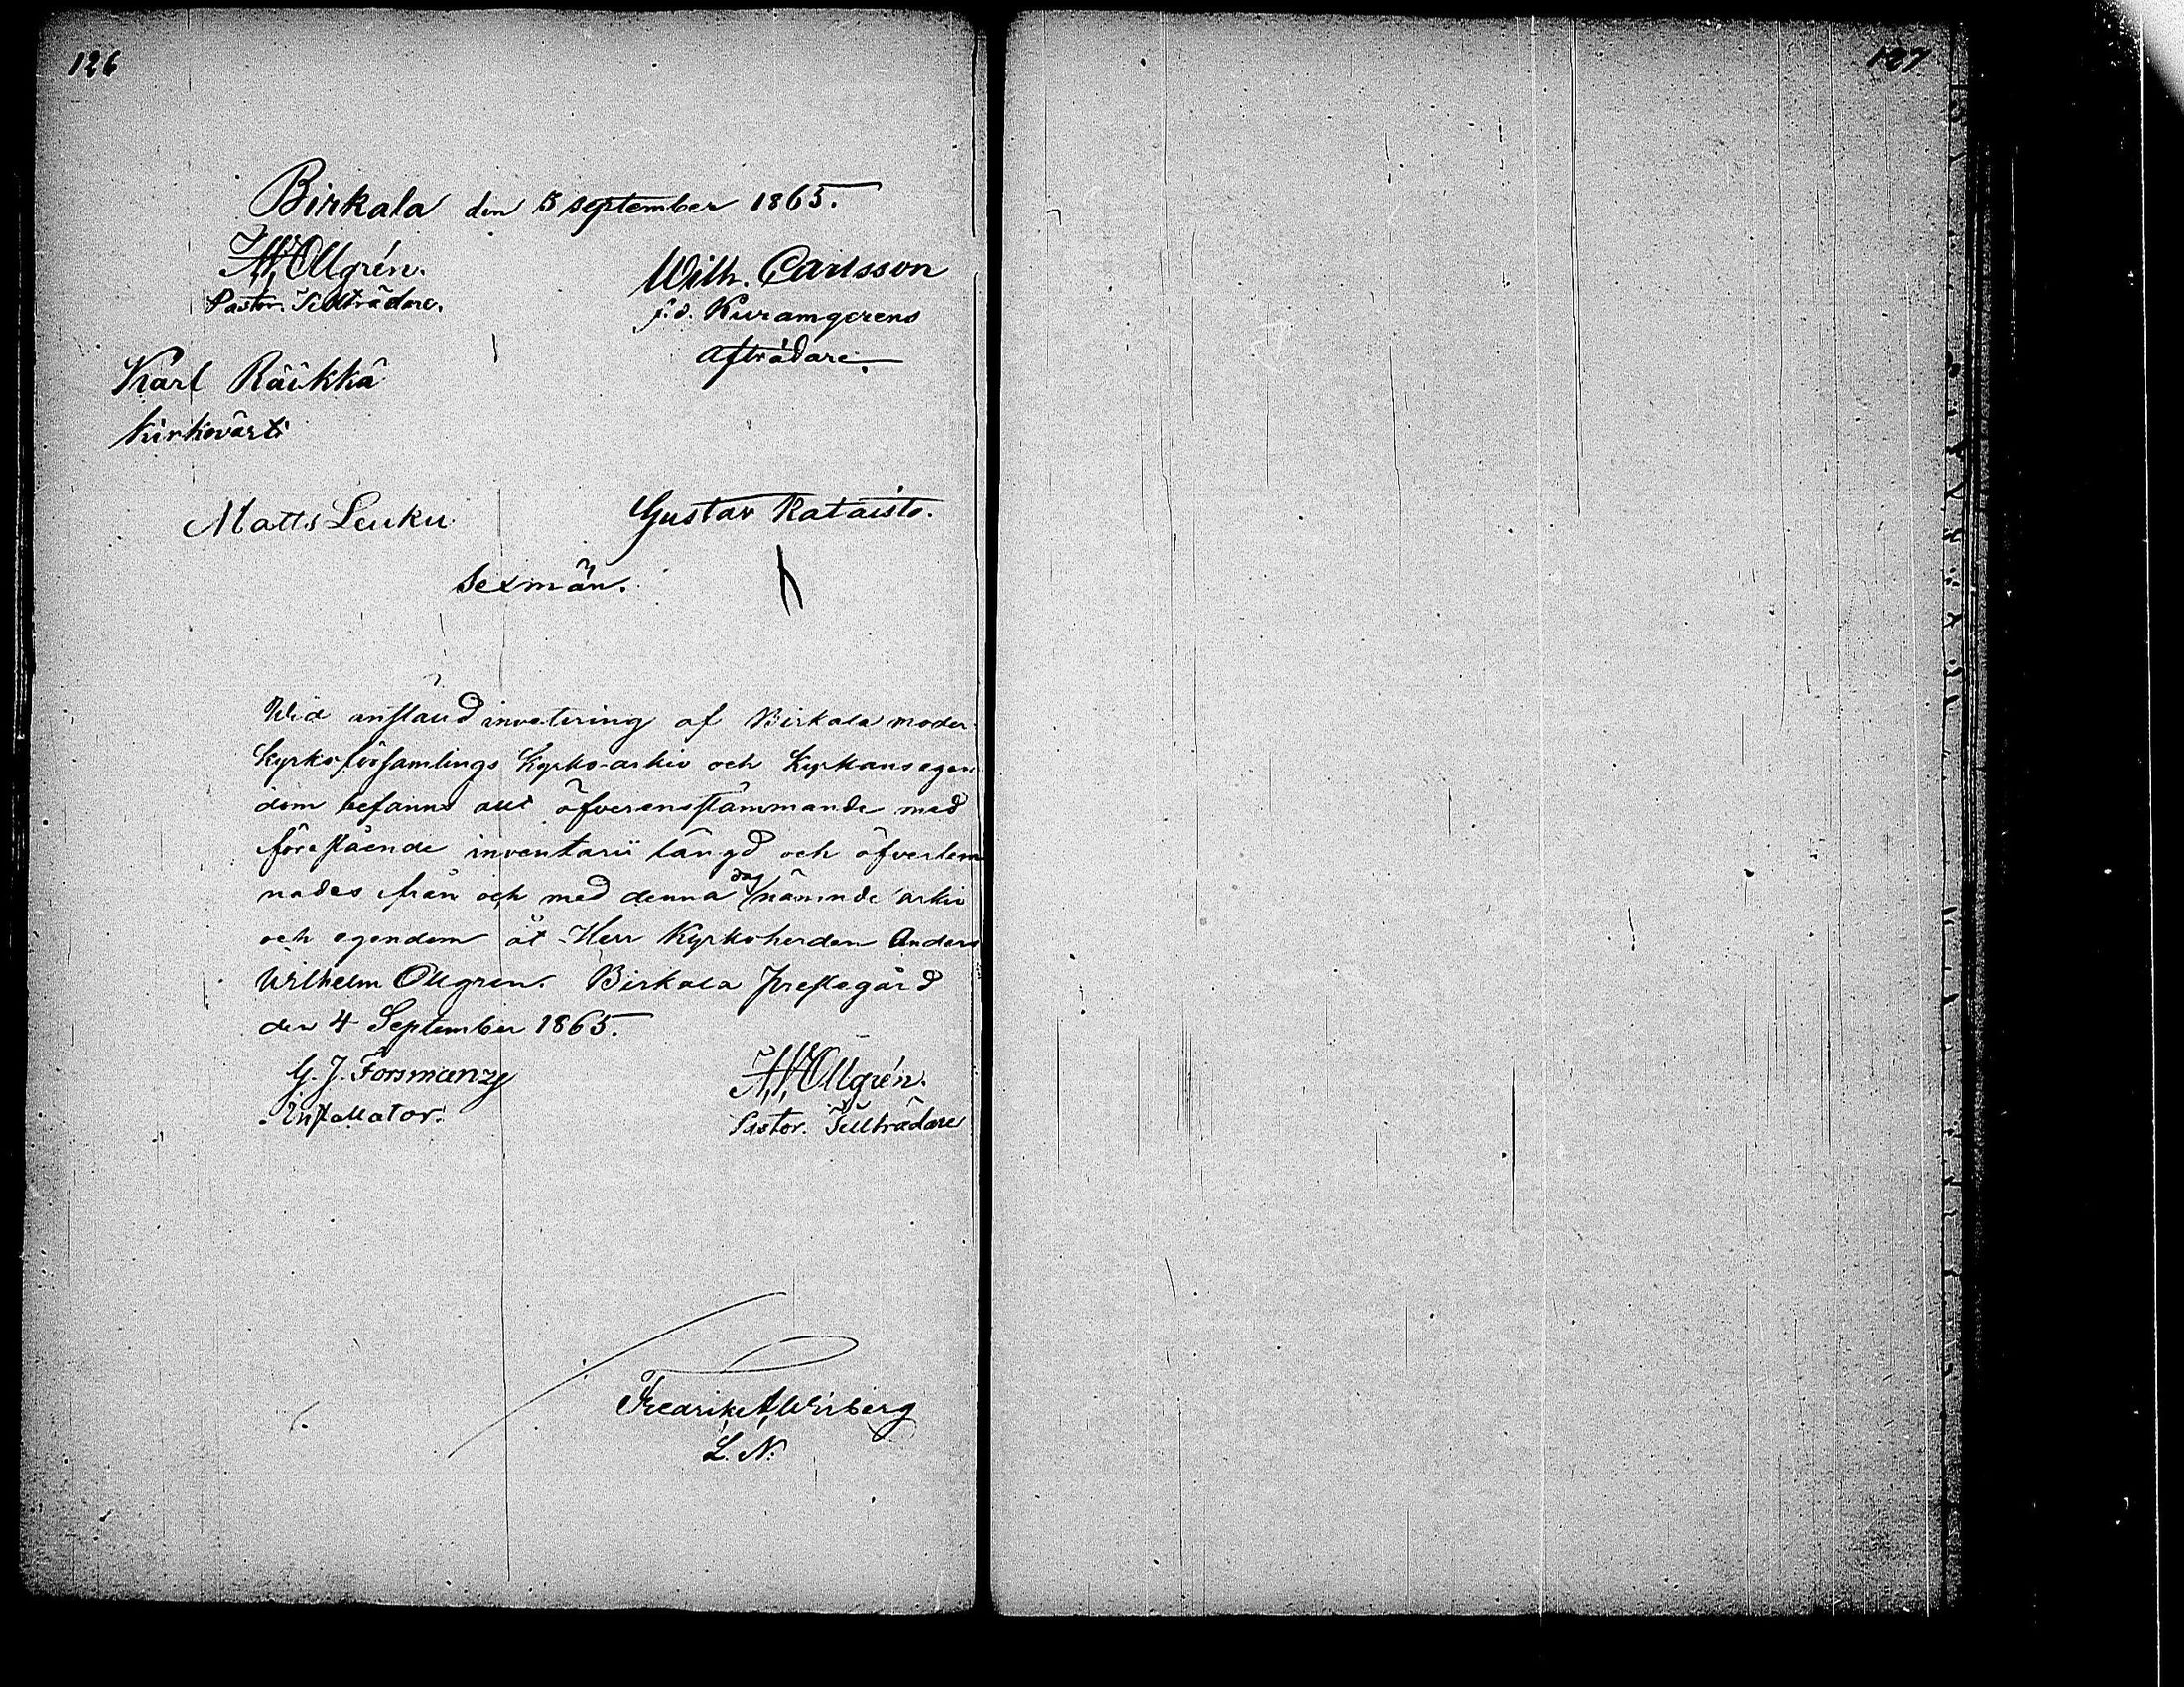 126
127
Birkala den 5 september 1865.
AWOllgrén.
Pastor. Tillträdare.
Wilh. Carlsson
f.d. Kuram gerens
Afträdare.
Karl Räikkä
Kirkovärti
Matts Leuku
Gustav Kataisto.
Sexmän.
Wid anstäld inventering af Birkala moder-
kyrkoförsamlings Kyrko-arkiv och Kyrkans egen
dom befanns allt öfverensstämmande med
förestående inventarii längd och öfverlem
nades från och med denna dag nämnde arkiv
och egendom åt Herr Kyrkoherden Anders
Wilhelm Ollgren. Birkala Prestegård
den 4 September 1865.
G. J. Forsman
Installator.
AWOllgrén.
Pastor. Tillträdare
Fredrik A Wiberg
L. N.